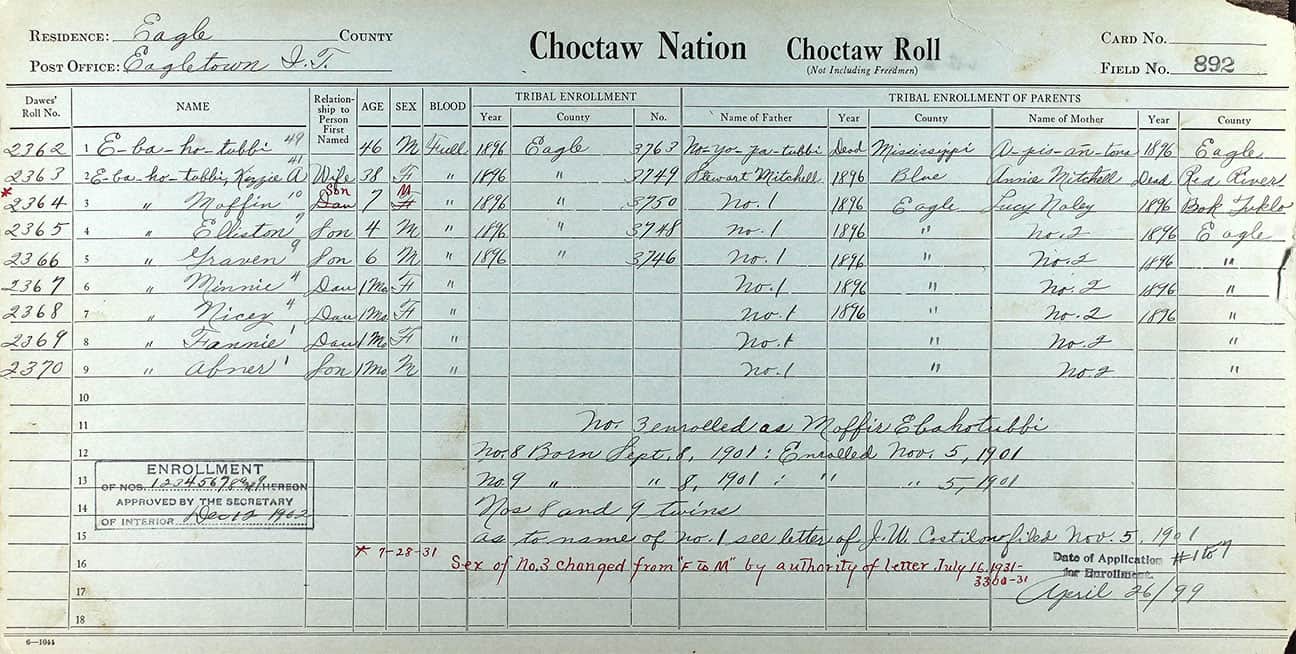 RESIDENCE: Eagle COUNTY
POST OFFICE: Eagletown I.T.
Choctaw Nation Choctaw Roll
(Not Including Freedmen)
CARD NO.
FIELD NO. 892
Dawes' Roll No. NAME Relationship to Person First Named AGE SEX BLOOD TRIBAL ENROLLMENT Year County No. TRIBAL ENROLLMENT OF PARENTS Name of Father Year County Name of Mother Year County
2362 1 E-ba-ho-tubbi 49 46 M Full 1896 Eagle 3763 No-yo-pa-tubbi Dead Mississippi A-pis-an-tona 1896 Eagle
2363 2 E-ba-ho-tubbi, Kizzie A 41 Wife 38 F " 1896 " 3749 Stewart Mitchell 1896 Blue Annie Mitchell Dead Red River
* 2364 3 " Moffin 10 Dau Son 7 F M " 1896 " 3750 No. 1 1896 Eagle Lucy Noley 1896 Bok Tuklo
2365 4 " Elliston 7 Son 4 M " 1896 " 3748 No. 1 1896 " No. 2 1896 Eagle
2366 5 " Graven 9 Son 6 M " 1896 " 3746 No. 1 1896 " No. 2 1896 "
2367 6 " Minnie 4 Dau 1 Mo F " No. 1 1896 " No. 2 1896 "
2368 7 " Nicey 4 Dau 1 Mo F " No. 1 1896 " No. 2 1896 "
2369 8 " Fannie 1 Dau 1 Mo F " No. 1 " No. 2 "
2370 9 " Abner 1 Son 1 Mo M " No. 1 " No. 2 "
10
11 No. 3 enrolled as Moffir Ebahotubbi
12 No. 8 Born Sept. 8, 1901: Enrolled Nov. 5, 1901
13 No. 9 " " 8, 1901 : " " 5, 1901
14 Nos 8 and 9 twins
15 as to name of no. 1 see letter of J.W. Costilow filed Nov. 5, 1901
ENROLLMENT
OF NOS. 123456789 HEREON
APPROVED BY THE SECRETARY
OF INTERIOR Dec 12 1902
* 7-28-31
16 Sex of No. 3 changed from "F to M" by authority of letter July 16, 1931-
3300-31
Date of Application for Enrollment. #1 to 7
17 April 26/99
18
6—1044